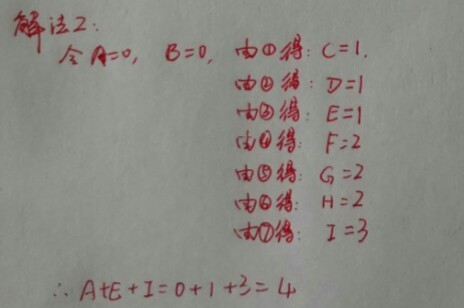 解法2:
令A=0, B=0, 由①得: C=1.
由②得: D=1
由③得: E=1
由④得: F=2
由⑤得: G=2
由⑥得: H=2
由⑦得: I=3
∴ A+E+I=0+1+3=4